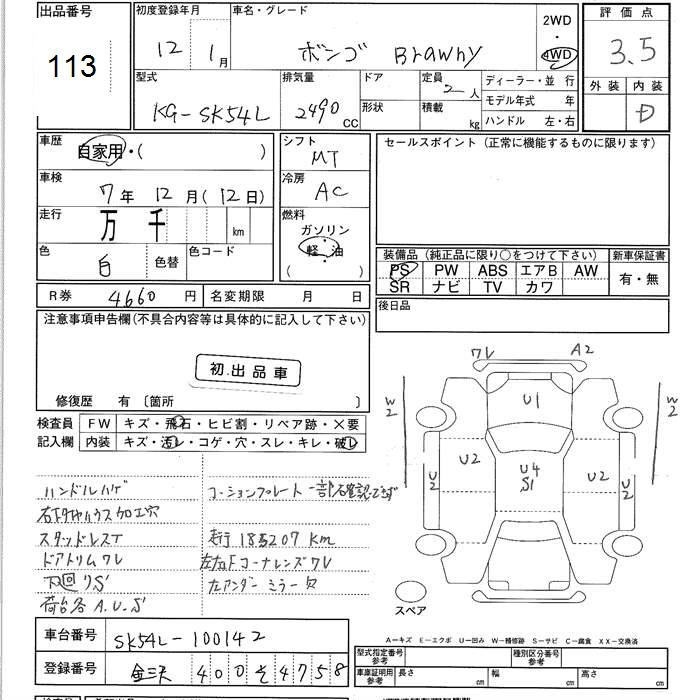 出品番号 初度登録年月 車名・グレード 2WD ・ 4WD 評価点
113 12年 1月 ボンゴ Brawny 3.5
型式 排気量 ドア 定員 2人 ディーラー・並 行 外装 内装
KG-SK54L 2490 CC 形状 積載 kg モデル年式 年 D
ハンドル 左・右
車歴 自家用・( ) シフト MT セールスポイント (正常に機能するものに限ります)
車検 7年 12月(12日) 冷房 AC
走行 万 千 km 燃料 ガソリン
色 白 色替 色コード 軽油 ( )
装備品 (純正品に限り○をつけて下さい) 新車保証書
PS PW ABS エアB AW 有・無
SR ナビ TV カワ
R券 4660 円 名変期限 月 日 後日品
注意事項申告欄(不具合内容等は具体的に記入して下さい)
初.出品車
修復歴 有 〔箇所 〕
検査員 FW キズ・飛石・ヒビ割・リペア跡・×要
記入欄 内装 キズ・汚レ・コゲ・穴・スレ・キレ・破レ
ワレ A2
W2 U1 W2
U2 U2 U4 S1 U2 U2
スペア
ハンドルハゲ コーションプレート一部確認できず
右下タイヤハウス加工穴
スタッドレスT 走行 185207 Km
ドアトリムワレ 左右Fコーナレンズワレ
下回りS 左アンダーミラー欠
荷台各A.U.S
A-キズ E-エクボ U-凹み W-補修跡 S-サビ C-腐食 XX-交換済
車台番号 SK54L-100142
型式指定番号 参考 種別区分番号 参考
登録番号 金沢 400 そ 4758
車庫証明用 参考 長さ cm 幅 cm 高さ cm